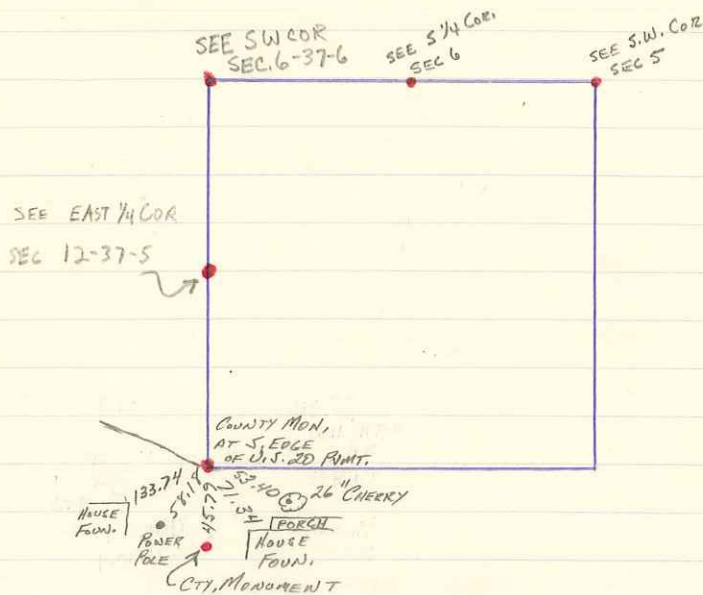 SEE SW COR
SEC. 6-37-6
SEE S 1/4 COR.
SEC 6
SEE S.W. COR
SEC 5
SEE EAST 1/4 COR
SEC 12-37-5
COUNTY MON,
AT S. EDGE
OF U.S. 20 PVMT.
133.74
58.18
45.79
21.34
53.40
26" CHERRY
HOUSE
FOUN.
POWER
POLE
PORCH
HOUSE
FOUN.
CTY. MONUMENT